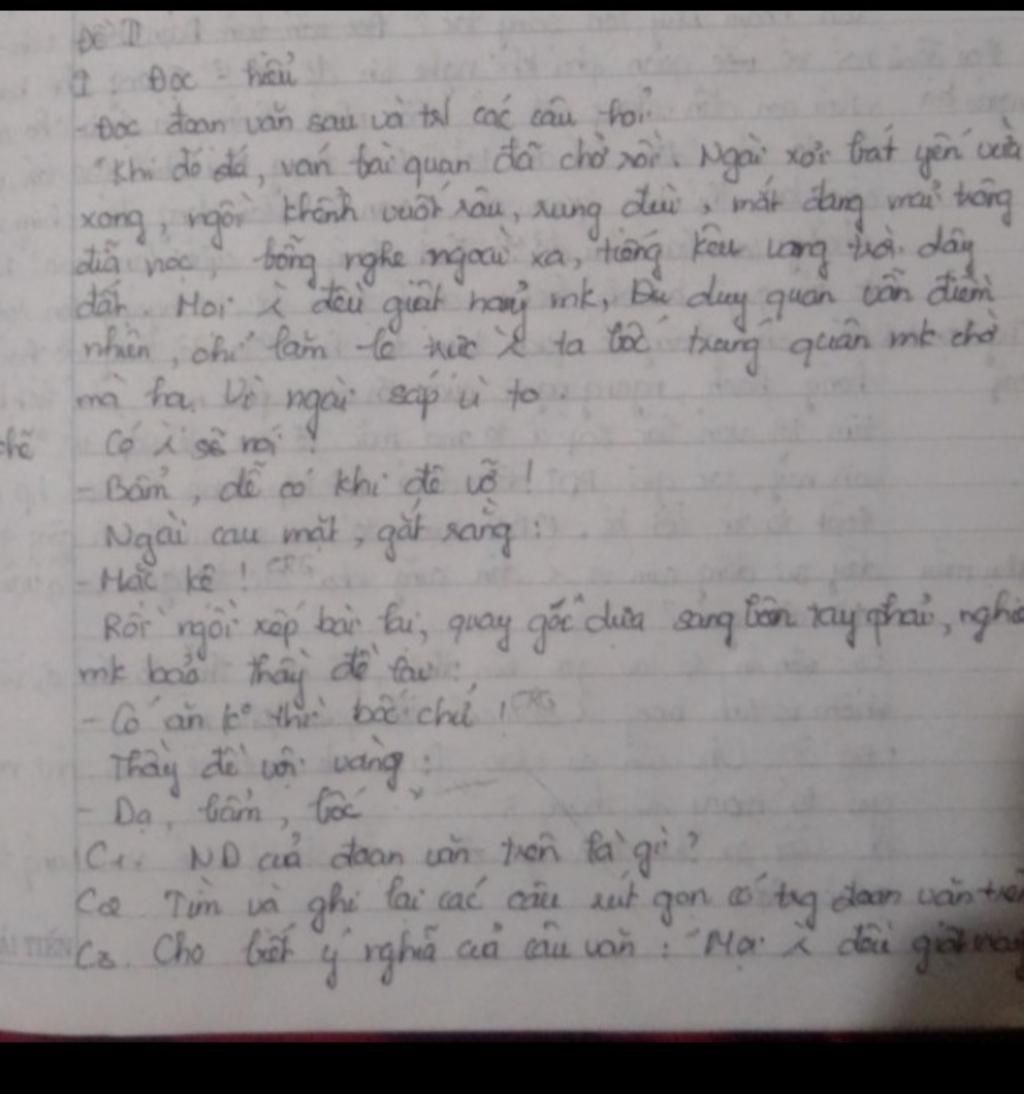 Đề II
I Đọc - hiểu
- Đọc đoạn văn sau và tl các câu hỏi
"Khi đó đá, ván bài quan đã chờ rồi. Ngài xơi bát yến vừa
xong, ngồi khểnh vuốt râu, rung đùi, mắt đang mải trông
đĩa nọc, bỗng nghe ngoài xa, tiếng kêu vang trời dậy
đất. Mọi λ đều giật nảy mk, Đủ duy quan vẫn điềm
nhiên, chỉ lăm le rực λ ta bốc trúng quân mk chờ
mà hạ. Vì ngài sắp ù to
chẽ
Có λ sẽ nói !
- Bẩm, dễ có khi đê vỡ !
Ngài cau mặt, gắt rằng :
- Mặc kệ ! CRG
Rồi ngồi xếp bài lại, quay gối dựa sang bên tay phải, nghiê
mk bảo thầy đề lại:
- Có ăn k° thì bốc chứ ! CRG
Thầy đề vội vàng :
- Dạ, bẩm, bốc
C1. ND của đoạn văn trên là gì ?
C2 Tìm và ghi lại các câu rút gọn có trg đoạn văn trên
ẢI TIẾN
C3. Cho biết ý nghĩa của câu văn : "Mọi λ đều giật nảy